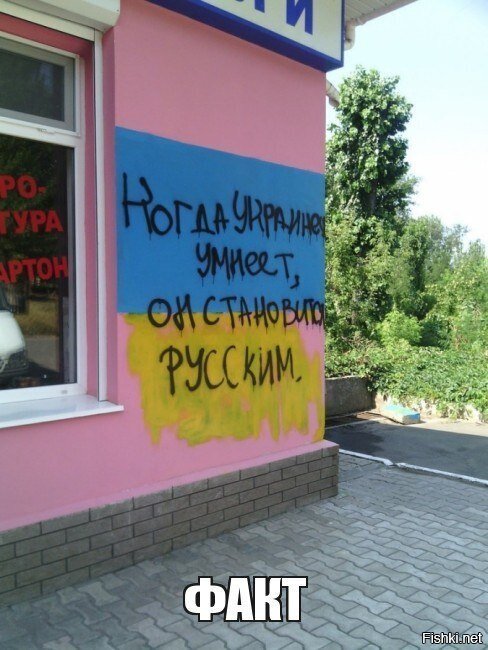 ГИ
РО-
ТУРА
АРТОН
Когда украинец
умнеет,
он становится
русским.
ФАКТ
Fishki.net